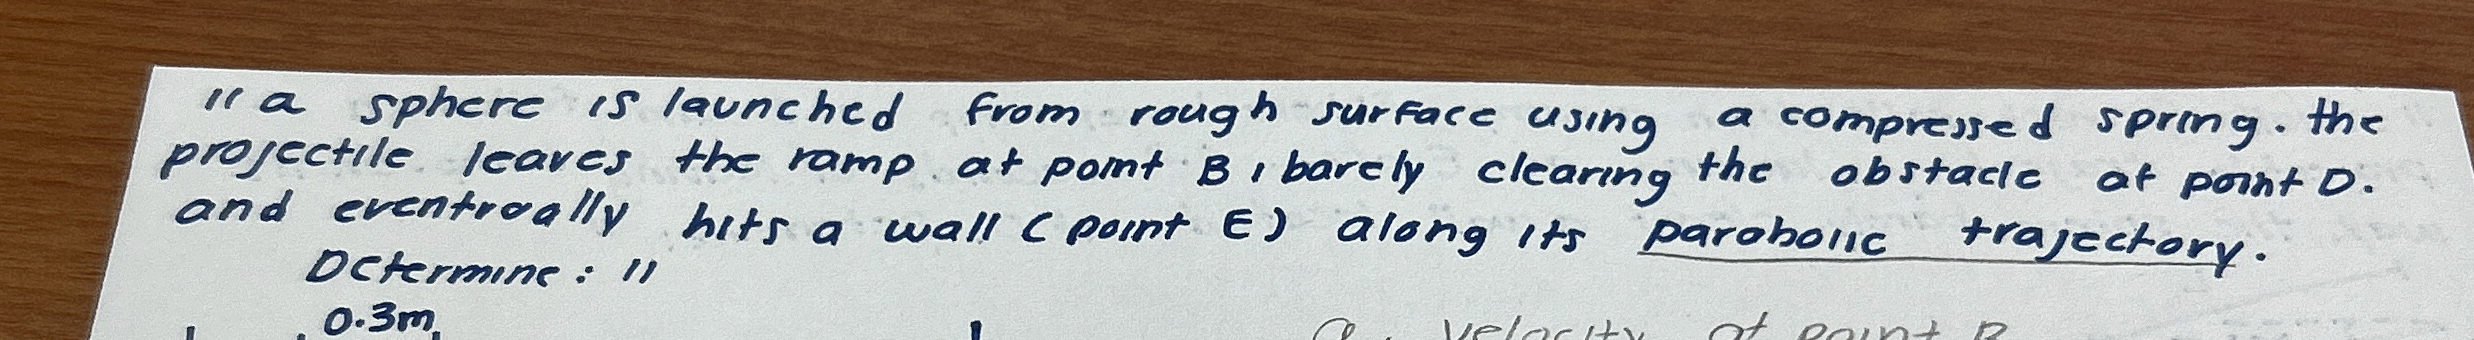 "a sphere is launched from rough surface using a compressed spring. the
projectile leaves the ramp at point B, barely clearing the obstacle at point D.
and eventually hits a wall (point E) along its parabolic trajectory.
Determine: "
0.3m
a. velocity at point B